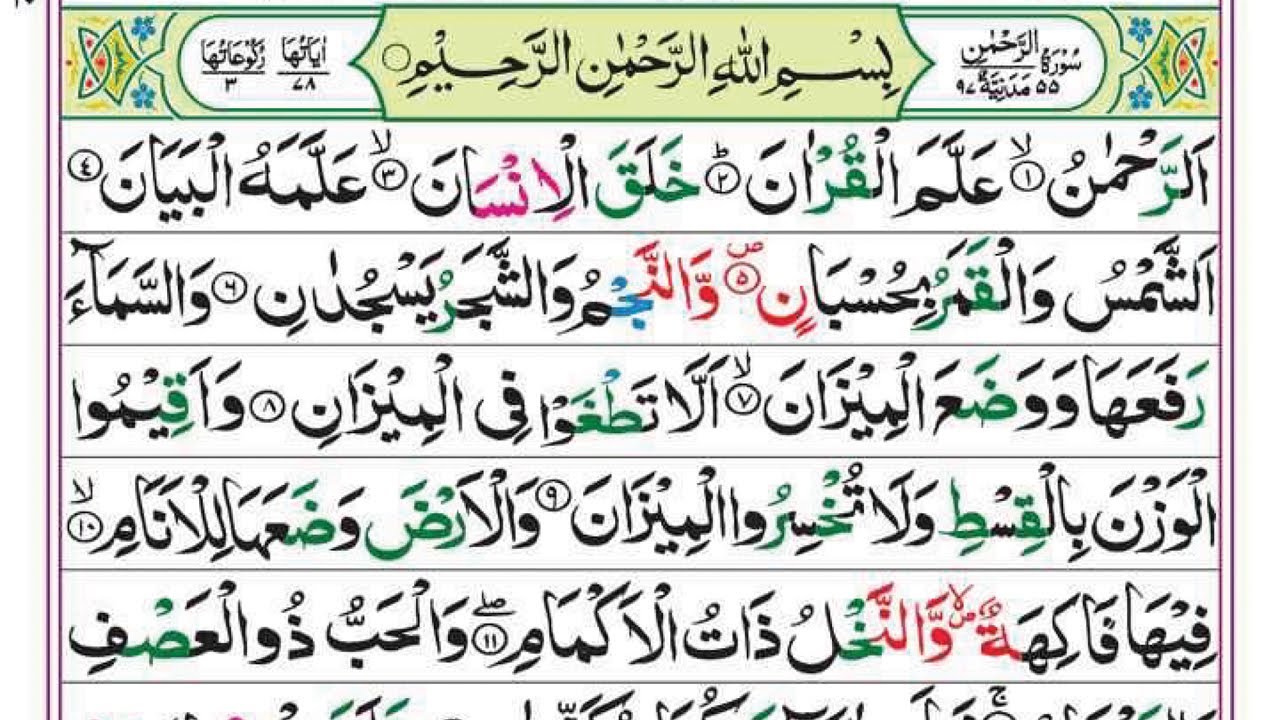 سُوْرَةُ الرَّحْمٰنِ ٥٥ مَدَنِيَّةٌ ٩٧
بِسْمِ اللّٰهِ الرَّحْمٰنِ الرَّحِيْمِ
اٰيَاتُهَا ٧٨ رُكُوْعَاتُهَا ٣
اَلرَّحْمٰنُ ۙ﴿١﴾ عَلَّمَ الْقُرْاٰنَ ؕ﴿٢﴾ خَلَقَ الْاِنْسَانَ ۙ﴿٣﴾ عَلَّمَهُ الْبَيَانَ ﴿٤﴾
اَلشَّمْسُ وَالْقَمَرُ بِحُسْبَانٍ ۪﴿٥﴾ وَّالنَّجْمُ وَالشَّجَرُ يَسْجُدٰنِ ﴿٦﴾ وَالسَّمَآءَ
رَفَعَهَا وَوَضَعَ الْمِيْزَانَ ۙ﴿٧﴾ اَلَّا تَطْغَوْا فِى الْمِيْزَانِ ﴿٨﴾ وَاَقِيْمُوا
الْوَزْنَ بِالْقِسْطِ وَلَا تُخْسِرُوا الْمِيْزَانَ ﴿٩﴾ وَالْاَرْضَ وَضَعَهَا لِلْاَنَامِ ۙ﴿١٠﴾
فِيْهَا فَاكِهَةٌ ۪ۙ وَّالنَّخْلُ ذَاتُ الْاَكْمَامِ ۖ﴿١١﴾ وَالْحَبُّ ذُو الْعَصْفِ